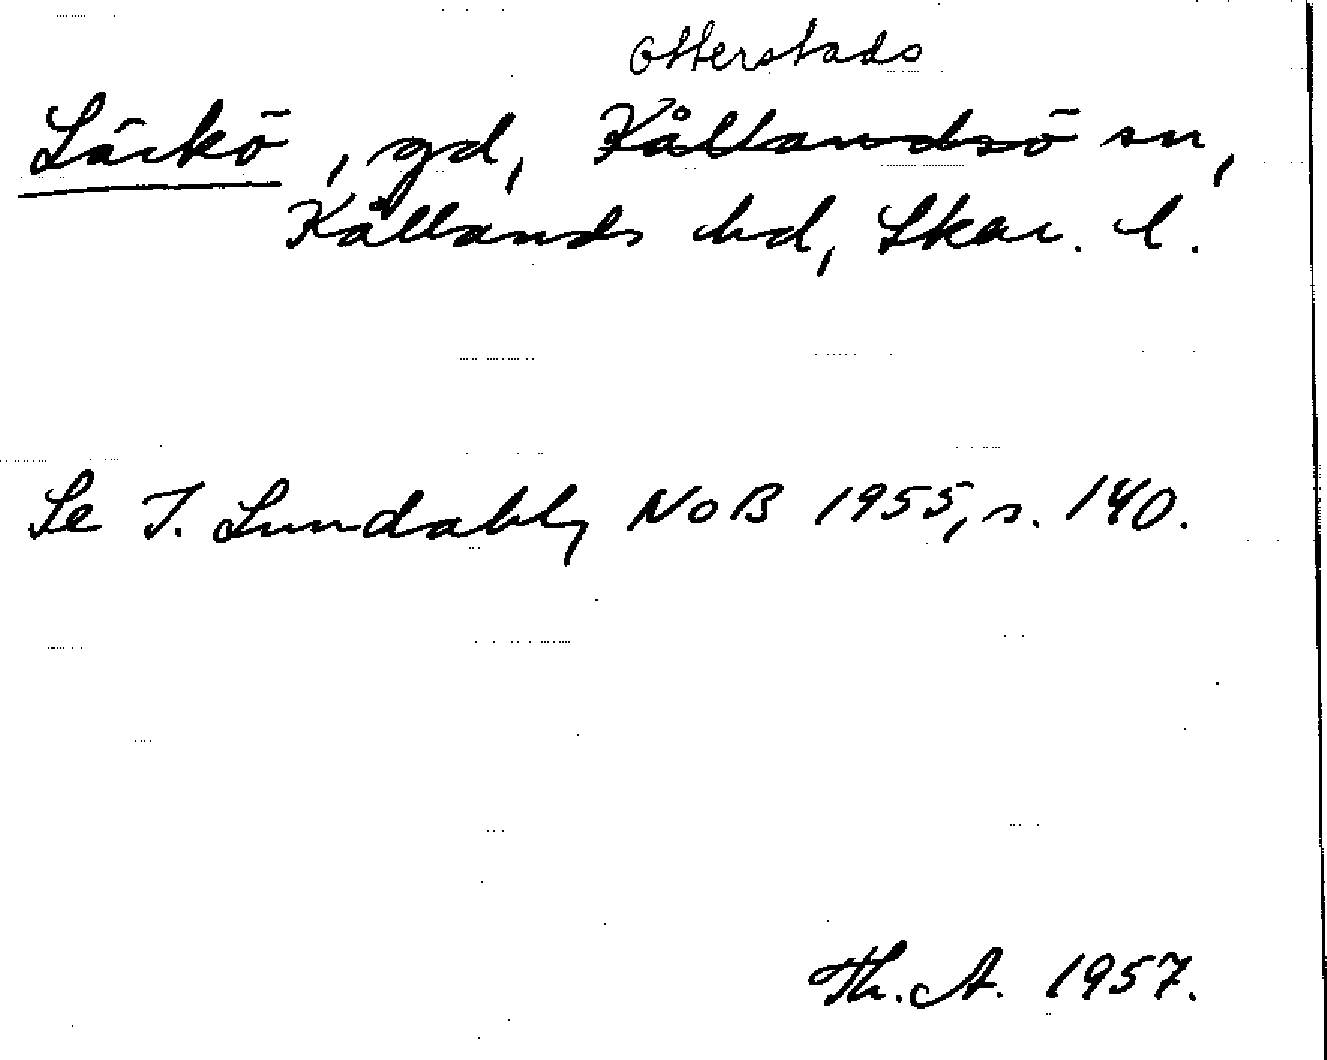 Otterstads
Läckö, gd, Kållandsö sn,
Kållands hd, Skar. l.
Se I. Lundahl, NoB 1955, s. 140.
Th. A. 1957.